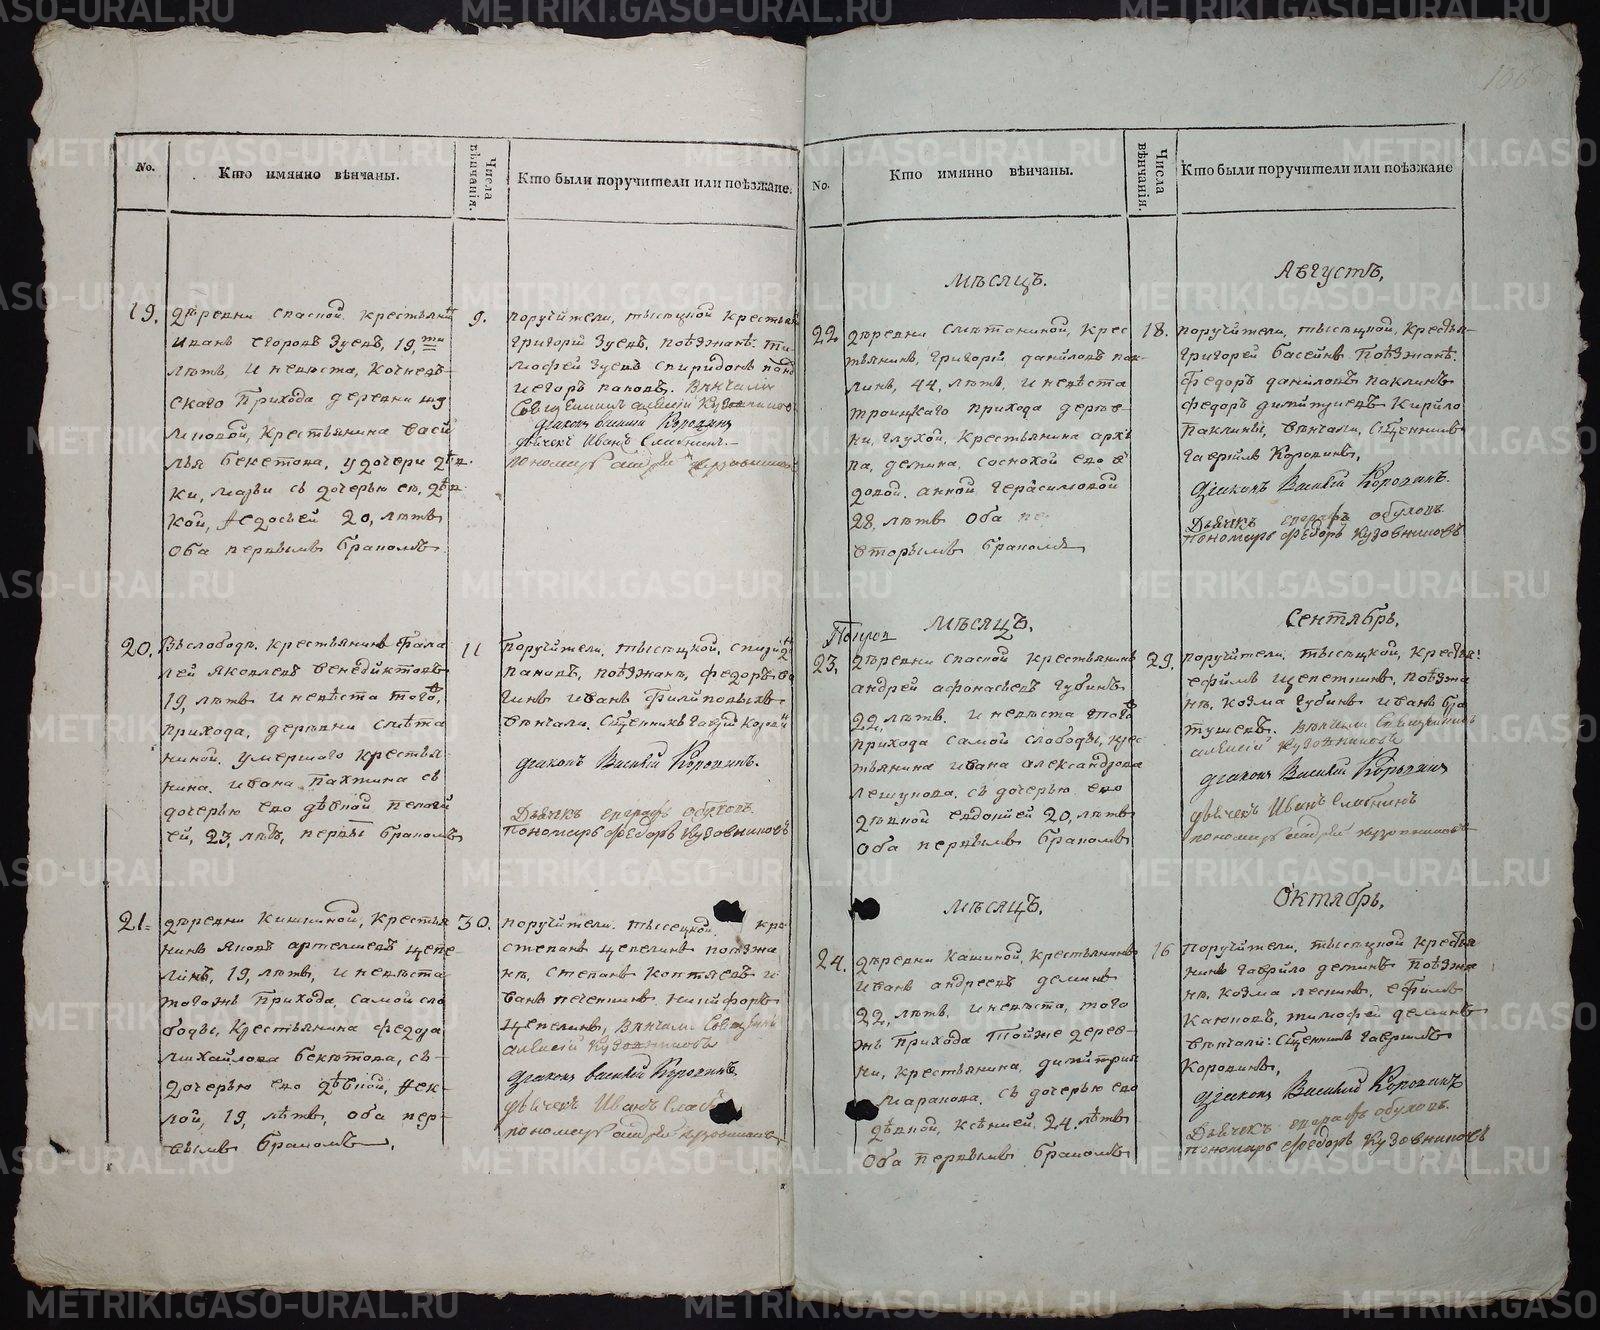 No.
Кто имянно вѣнчаны.
Числа вѣнчанія.
Кто были поручители или поѣзжане.
19.
деревни спасной крестьянинъ
иванъ егоровъ зуевъ, 19,ти
лѣтъ, и невѣста, кочнев-
скаго прихода деревни
крестьянина васи
лья бекетова, у дочери дѣв.
ки, марьи съ дочерью ея, дѣв
кой, федосьей 20, лѣтъ
оба первымъ бракомъ
9.
поручители, тысяцкой крестьян
григорій зуевъ, поѣзжанѣ: ти
мофей зуевъ спиридонъ пано
и егоръ пановъ. Вѣнчали
Священникъ алексій Кузовниковъ
діаконъ василій Коровинъ
дьячекъ Иванъ Слабнинъ
пономарь андрей кузовниковъ
20.
Въ слободѣ, крестьянинъ фала
лей яковлевъ бенедиктовъ
19, лѣтъ и невѣста того
прихода, деревни смѣта
ниной, умершаго крестья
нина. ивана пахтина съ
дочерью ево дѣвкой пелагѣ
ей, 23, лѣтъ, первы бракомъ
11
поручители, тысяцкой, спирид
пановъ, поѣзжанѣ, федоръ
иванъ филиповыхъ
вѣнчали, Сщенникъ гаврій Корови
діаконъ Василій Коровинъ.
Дьячекъ евграфъ обуховъ
пономарь федоръ кузовниковъ
21.
деревни Кишкиной, крестья
нинъ яковъ артемьевъ цепе
линъ, 19, лѣтъ, и невѣста
тогожъ прихода, самой сло
боды, крестьянина федора
михайлова бекѣтова, съ
дочерью ево дѣвкой, фек-
лой, 19, лѣтъ, оба пер-
вымъ бракомъ.
30.
поручители. тысецкой. кре
степанъ цепелинъ поѣзжа
нѣ, степанъ коптяевъ и
ванъ печенкинъ, никифоръ
цепелинъ, Вѣнчали Священн
алексій Кузовниковъ
діаконъ василій Коровинъ.
дьячекъ Иванъ Слаб
пономарь андрей кузовниковъ
No.
Кто имянно вѣнчаны.
Числа вѣнчанія.
Кто были поручители или поѣзжане
Мѣсяцъ.
Августъ,
22
деревни сметаниной, крес
тьянинъ, григорій даниловъ пак-
линъ, 44, лѣтъ, и невѣста
троицкаго прихода дерев-
ни, глухой, крестьянина архи
па, демина, сосновой ево в
довой, анной герасимовой
28, лѣтъ оба
вторымъ бракомъ
18.
поручители, тысяцкой, крестья-
григорей басейнъ поѣзжанѣ:
федоръ даниловъ паклинъ
федоръ димитріевъ кирило
паклины, вѣнчали, Сщенникъ
гаврилъ Коровинъ,
діаконъ Василій Коровинъ.
Дьячекъ евграфъ обуховъ
пономарь федоръ кузовниковъ
Мѣсяцъ.
Сентябрь,
23,
деревни спасной крестьянинъ
андрей афонасьевъ губинъ
22, лѣтъ. и невѣста того
прихода самой слободы, крес
тьянина ивана александрова
лешукова, съ дочерью ево
дѣвкой евдокией 20, лѣтъ
оба первымъ бракомъ
29.
поручители. тысяцкой, крестья:
ефимъ щепеткинъ, поѣзжа
нѣ, козма губинъ иванъ бра
тушевъ. Вѣнчали Священникъ
алексій кузовниковъ
діаконъ Василій Коровинъ
дьячекъ Иванъ Слабнинъ
пономарь андрей кузовниковъ
Мѣсяцъ.
Октябрь,
24.
деревни кашиной, крестьянинъ
иванъ андреевъ деминъ
22, лѣтъ, и невѣста, того
жъ прихода тойже дерев-
ни, крестьянина, димитрия
маракова, съ дочерью ево
дѣвкой, ксѣнией, 24, лѣтъ
оба первымъ бракомъ
16
поручители, тысяцкой крестья
нинъ гаврило деминъ поѣзжа
нѣ, козма леснинъ, ефимъ
каюковъ, тимофей деминъ
вѣнчали: Сщенникъ гаврилъ
Коровинъ,
діаконъ Василій Коровинъ
Дьячекъ евграфъ обуховъ.
пономарь федоръ кузовниковъ
METRIKI.GASO-URAL.RU